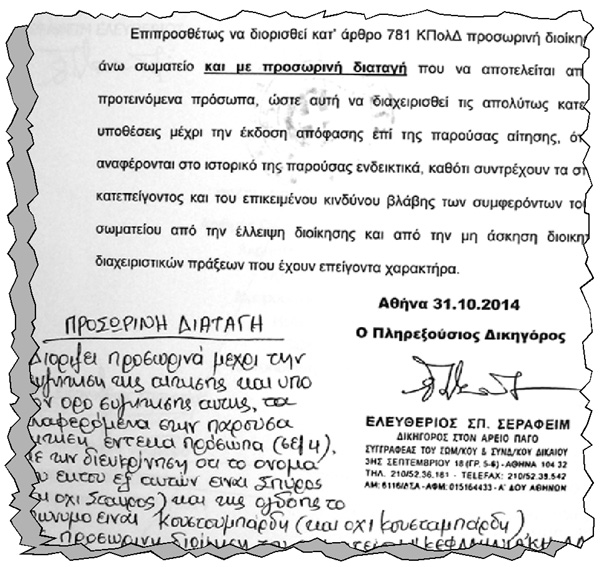 Επιπροσθέτως να διορισθεί κατ' άρθρο 781 ΚΠολΔ προσωρινή διοίκη
άνω σωματείο και με προσωρινή διαταγή που να αποτελείται απ
προτεινόμενα πρόσωπα, ώστε αυτή να διαχειρισθεί τις απολύτως κατε
υποθέσεις μέχρι την έκδοση απόφασης επί της παρούσας αίτησης, ότ
αναφέρονται στο ιστορικό της παρούσας ενδεικτικά, καθότι συντρέχουν τα στ
κατεπείγοντος και του επικειμένου κινδύνου βλάβης των συμφερόντων το
σωματείου από την έλλειψη διοίκησης και από την μη άσκηση διοικη
διαχειριστικών πράξεων που έχουν επείγοντα χαρακτήρα.
Αθήνα 31.10.2014
Ο Πληρεξούσιος Δικηγόρος
ΕΛΕΥΘΕΡΙΟΣ ΣΠ. ΣΕΡΑΦΕΙΜ
ΔΙΚΗΓΟΡΟΣ ΣΤΟΝ ΑΡΕΙΟ ΠΑΓΟ
ΣΥΓΓΡΑΦΕΑΣ ΤΟΥ ΣΩΜ/ΚΟΥ & ΣΥΝΔ/ΚΟΥ ΔΙΚΑΙΟΥ
3ΗΣ ΣΕΠΤΕΜΒΡΙΟΥ 18 (ΓΡ. 5-6) - ΑΘΗΝΑ 104 32
ΤΗΛ. 210/52.36.181 - TELEFAX: 210/52.39.542
ΑΜ: 6116/ΔΣΑ - ΑΦΜ: 015164433 - Α' ΔΟΥ ΑΘΗΝΩΝ
ΠΡΟΣΩΡΙΝΗ ΔΙΑΤΑΓΗ
Διορίζει προσωρινά μέχρι την
συζήτηση της αίτησης και υπό
ον όρο συζήτησης αυτής, τα
ναφερόμενα στην παρούσα
αίτηση έντεκα πρόσωπα (σελ 4),
ε την διευκρίνηση ότι το όνομα
υ έκτου εξ αυτών είναι Σπύρος
αι όχι Σταύρος) και της όγδοης το
ώνυμο είναι Κουστουμπάρδη (και όχι Κουσταμπάρδη)
προσωρινή διοίκηση του